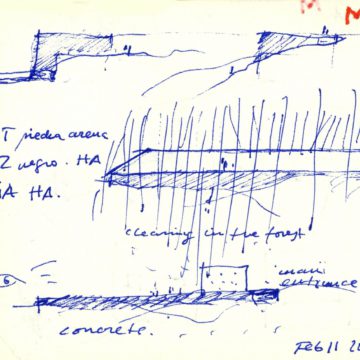 M
T piedra arena
Z negro. HA
A HA.
clearing in the forest
main
entrance
6
concrete.
Feb 11 20